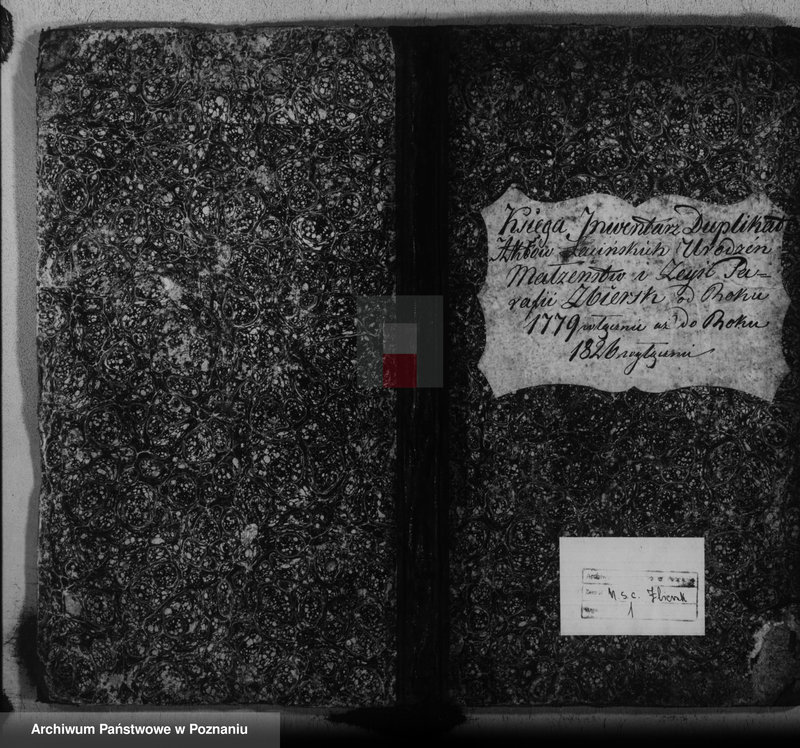 Księga Inwentarz Duplikat
Aktów Łacińskich Urodzeń
Małzeństw i Zeyść Pa-
rafii Zbiersk od Roku
1779 włącznie aż do Roku
1826 włącznie
U.S.C. Zbiersk
1
Archiwum Państwowe w Poznaniu